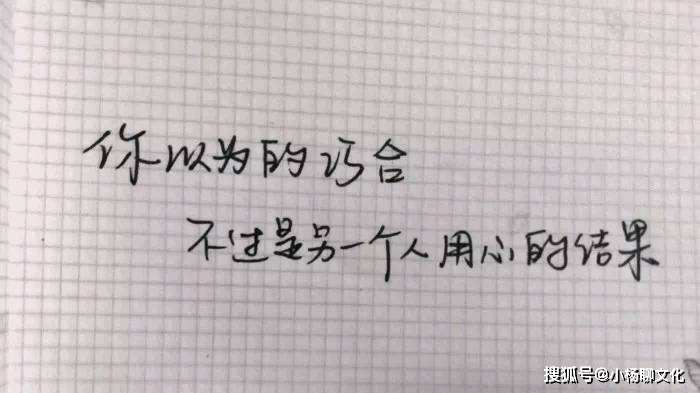 你以为的巧合
不过是另一个人用心的结果
搜狐号@小杨聊文化